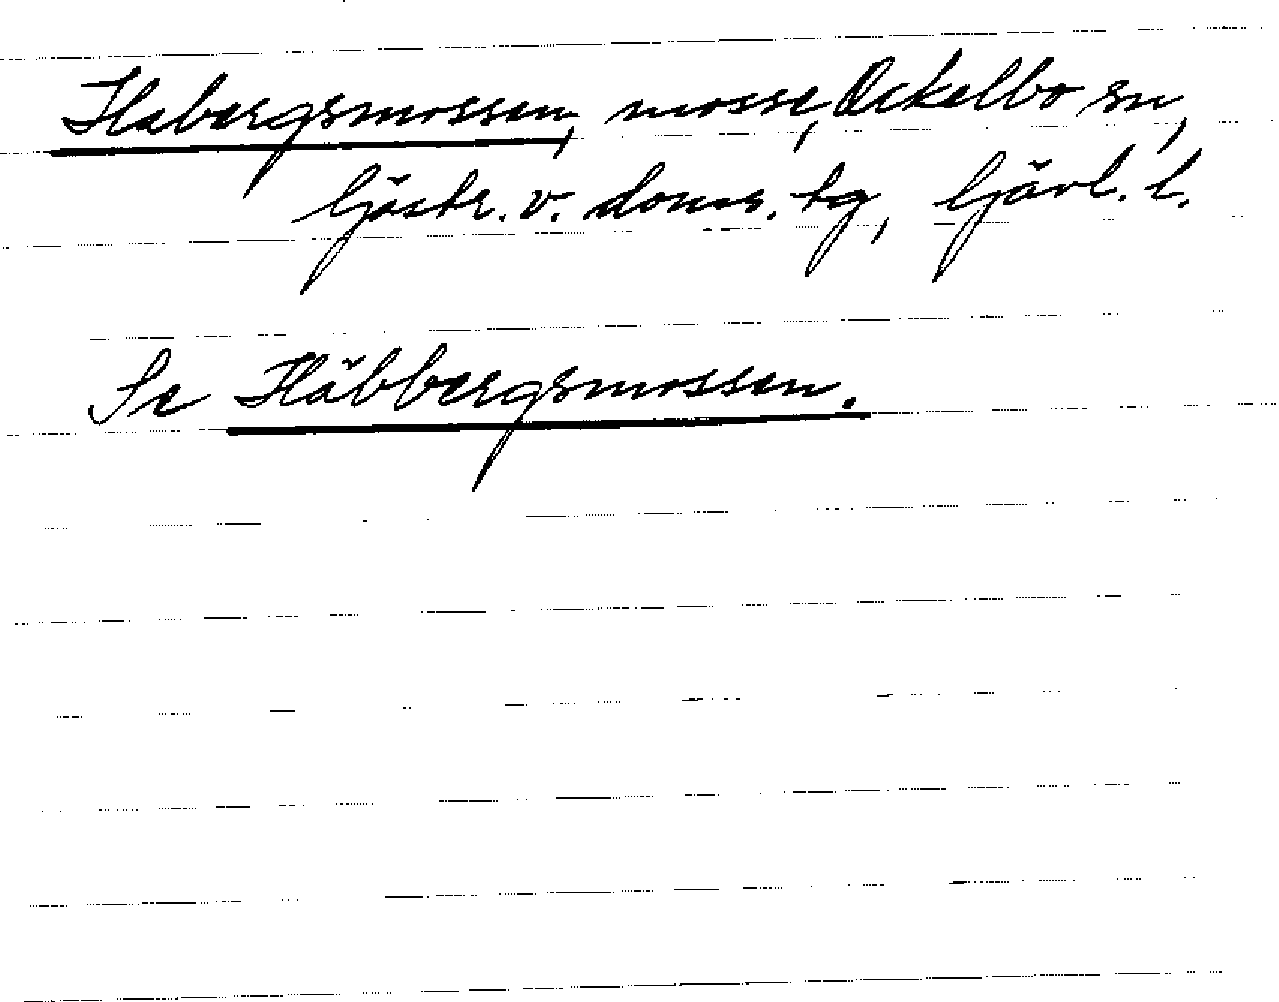 Habergsmossen, mosse, Ockelbo sn,
Gästr. v. doms. tg, Gävl. l.
Se Häbbergsmossen.